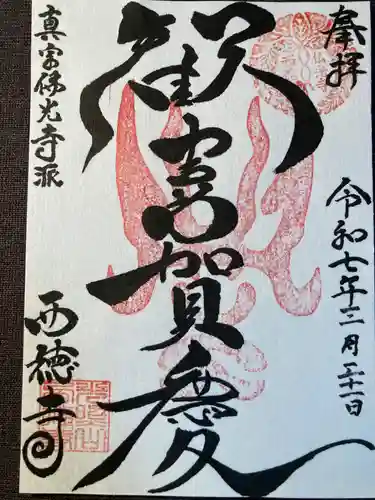 奉拝
令和七年三月三十一日
歓喜賀慶
真宗佛光寺派
西徳寺